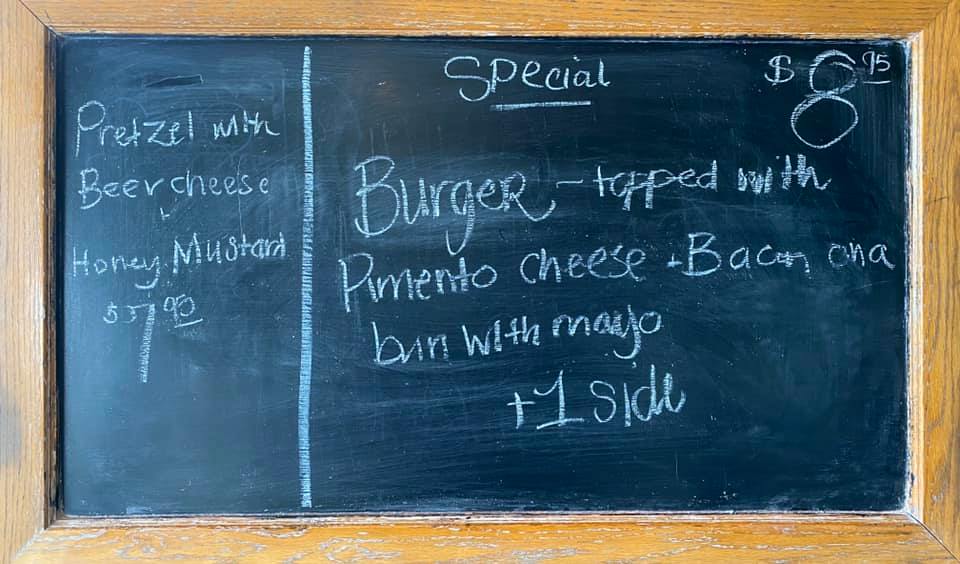 Pretzel with
Beer cheese
Honey Mustard
Special
$8.95
Burger - topped with
Pimento cheese + Bacon on a
bun with mayo
+ 1 side